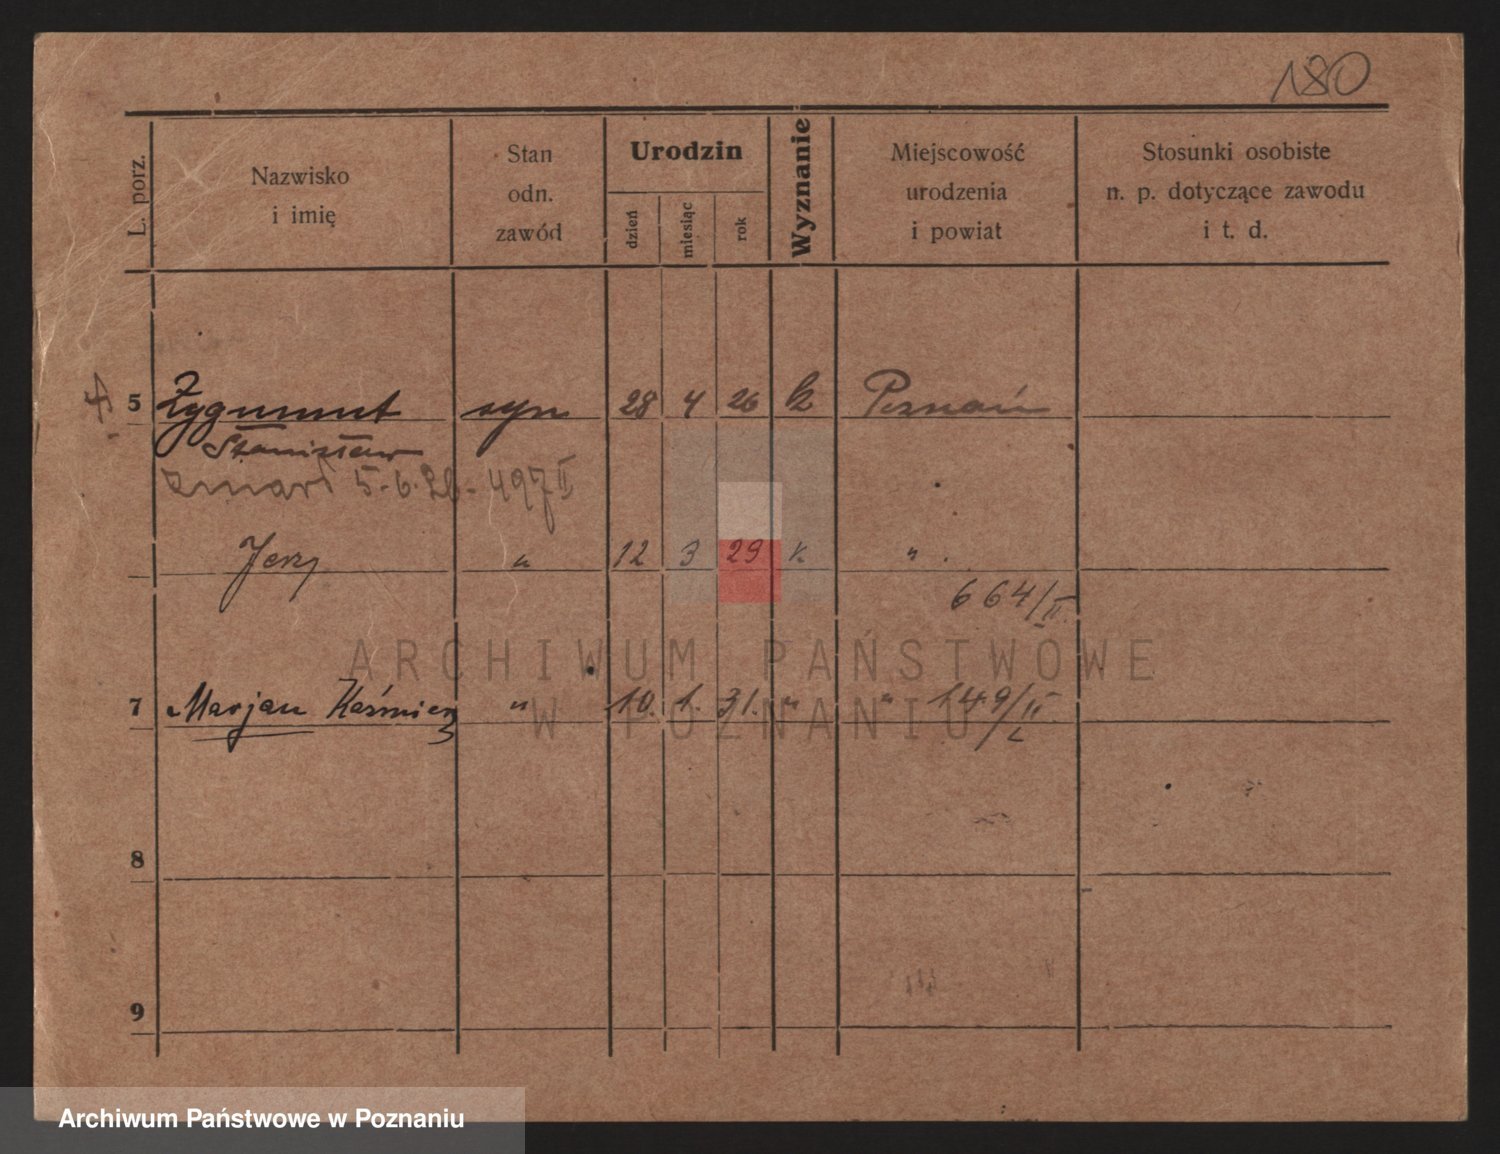 180
L. porz.
Nazwisko
i imię
Stan
odn.
zawód
Urodzin
dzień
miesiąc
rok
Wyznanie
Miejscowość
urodzenia
i powiat
Stosunki osobiste
n. p. dotyczące zawodu
i t. d.
5 Zygmunt syn 28 4 26 k Poznań
Stanisław
zmarł 5.6.26 - 497 II
Jerzy " 12 3 29 k "
664/II.
ARCHIWUM PAŃSTWOWE
W POZNANIU
7 Marjan Kaźmierz " 10. 1. 31. " " 149/II
8
9
Archiwum Państwowe w Poznaniu